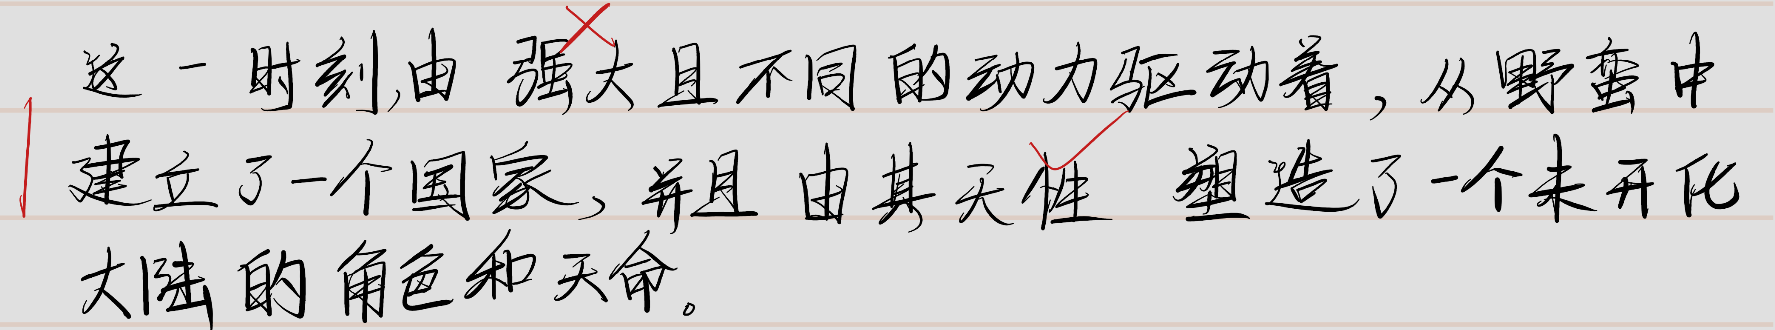 这一时刻,由强大且不同的动力驱动着,从野蛮中
建立了一个国家,并且由其天性塑造了一个未开化
大陆的角色和天命。